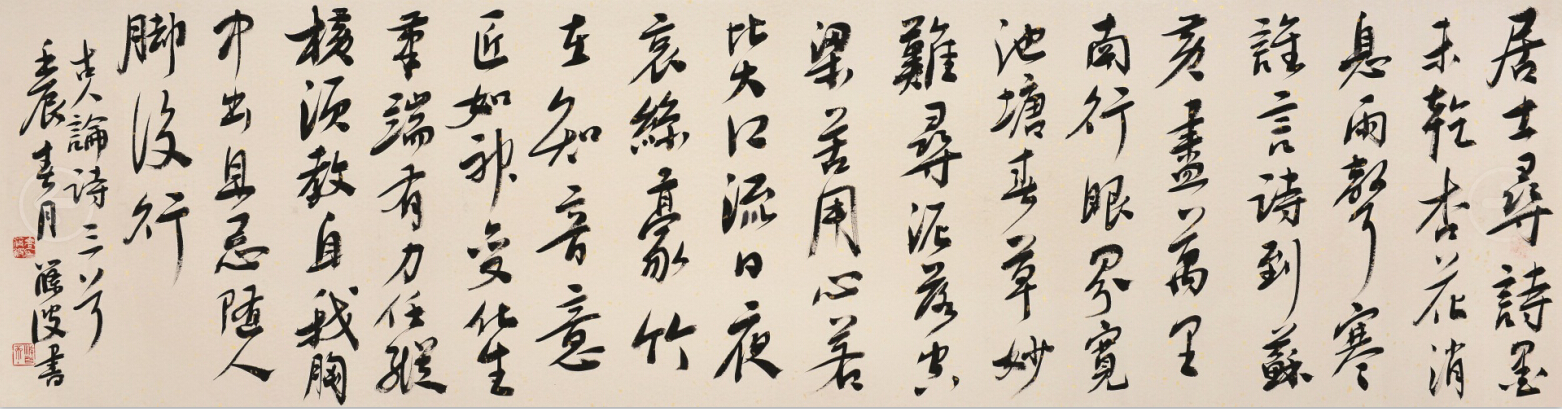 居士尋詩墨
未乾杏花消
息雨聲寒
誰言詩到蘇
黃盡萬里
南行眼界寬
池塘春草妙
難尋泥落空
梁苦用心若
比大江流日夜
哀絲豪竹
在知音意
匠如神變化生
筆端有力任縱
橫須教自我胸
中出且忌隨人
脚後行
古人論詩三首
壬辰春月 波書